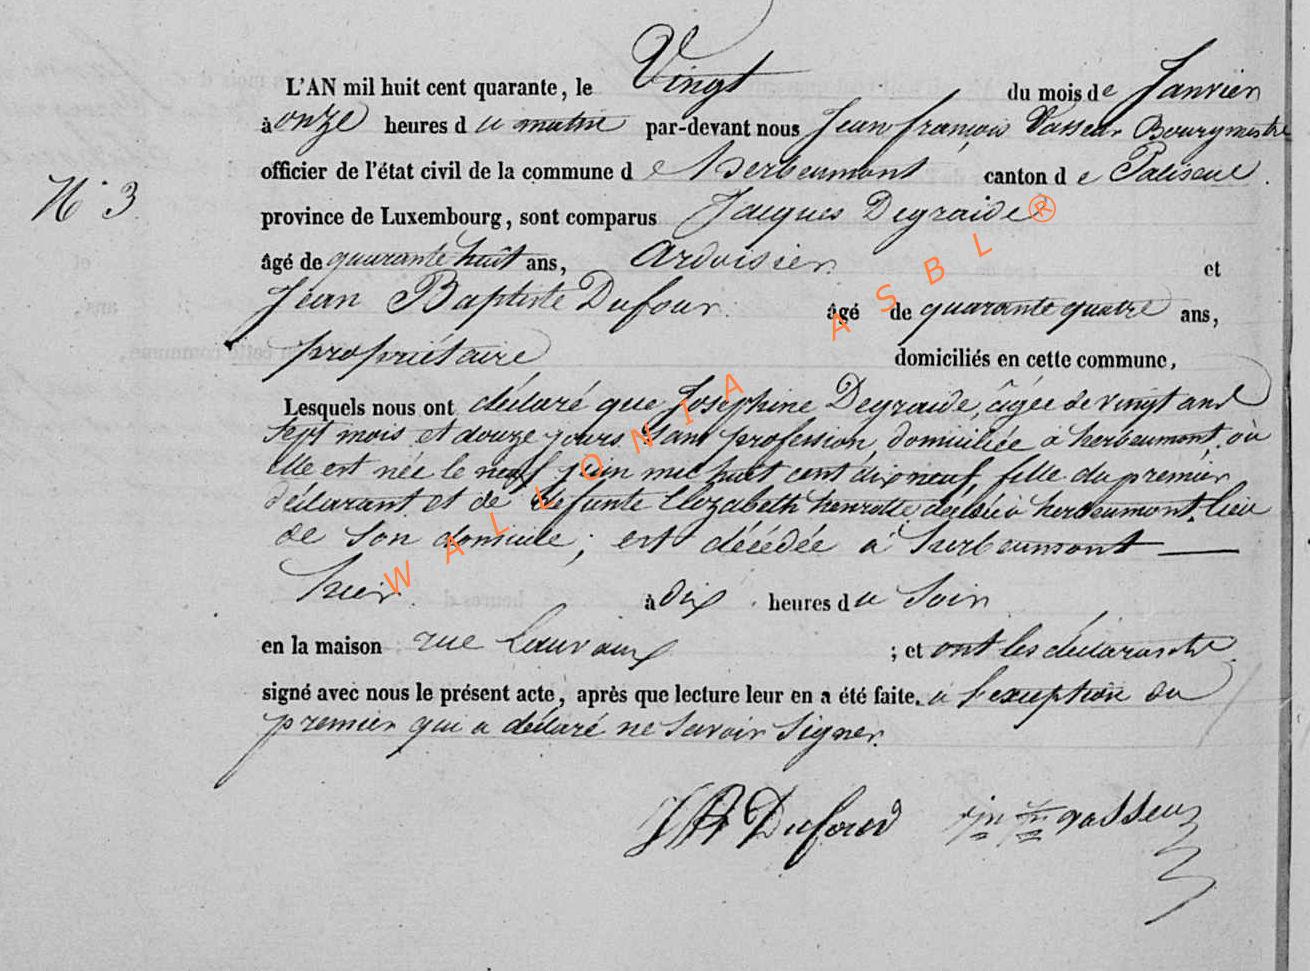 L'AN mil huit cent quarante, le Vingt du mois de Janvier
à onze heures du matin par-devant nous Jean françois Vasseur Bourgmestre
officier de l'état civil de la commune de herbeumont canton de Paliseul
N° 3
province de Luxembourg, sont comparus Jacques Degraide
âgé de quarante huit ans, Ardoisier et
Jean Baptiste Dufour âgé de quarante quatre ans,
propriétaire domiciliés en cette commune,
Lesquels nous ont déclaré que Josephine Degraide, âgée de vingt ans
sept mois et douze jours Sans profession, domiciliée à herbeumont, où
elle est née le neuf juin mil huit cent dix neuf, fille du premier
déclarant et de défunte Elizabeth henrotte décédée à herbeumont, lieu
de Son domicile; est décédée à herbeumont
hier à dix heures du Soir
en la maison rue Lauvaux ; et ont les déclarants
signé avec nous le présent acte, après que lecture leur en a été faite. à l'exception du
premier qui a déclaré ne Savoir Signer.
JB Dufour vasseur
WALLONIA ASBL ®